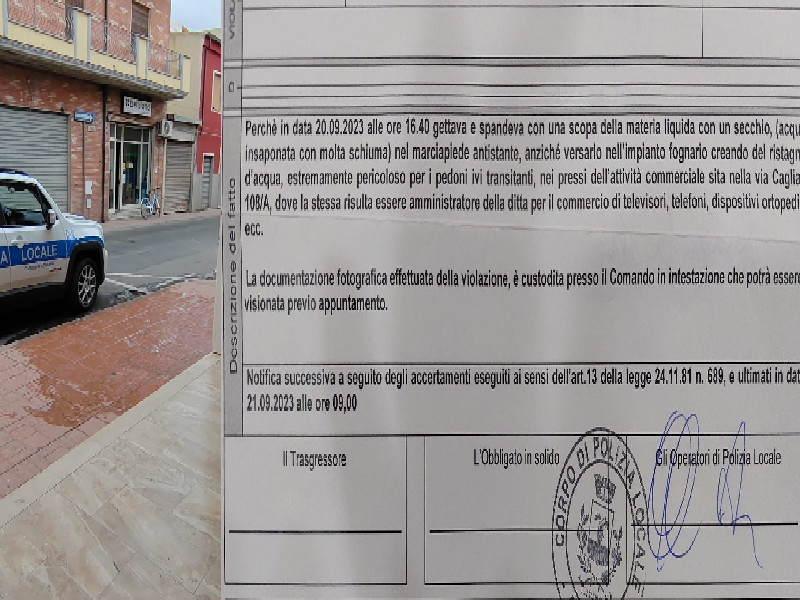 A LOCALE
VIOL
D
Descrizione del fatto
Perchè in data 20.09.2023 alle ore 16.40 gettava e spandeva con una scopa della materia liquida con un secchio, (acqu
insaponata con molta schiuma) nel marciapiede antistante, anziché versarlo nell'impianto fognario creando del ristagn
d'acqua, estremamente pericoloso per i pedoni ivi transitanti, nei pressi dell'attività commerciale sita nella via Caglia
108/A, dove la stessa risulta essere amministratore della ditta per il commercio di televisori, telefoni, dispositivi ortopedi
ecc.
La documentazione fotografica effettuata della violazione, è custodita presso il Comando in intestazione che potrà essere
visionata previo appuntamento.
Notifica successiva a seguito degli accertamenti eseguiti ai sensi dell'art.13 della legge 24.11.81 n. 689, e ultimati in dat
21.09.2023 alle ore 09,00
Il Trasgressore
L'Obbligato in solido
Gli Operatori di Polizia Locale
CORPO DI POLIZIA LOCALE